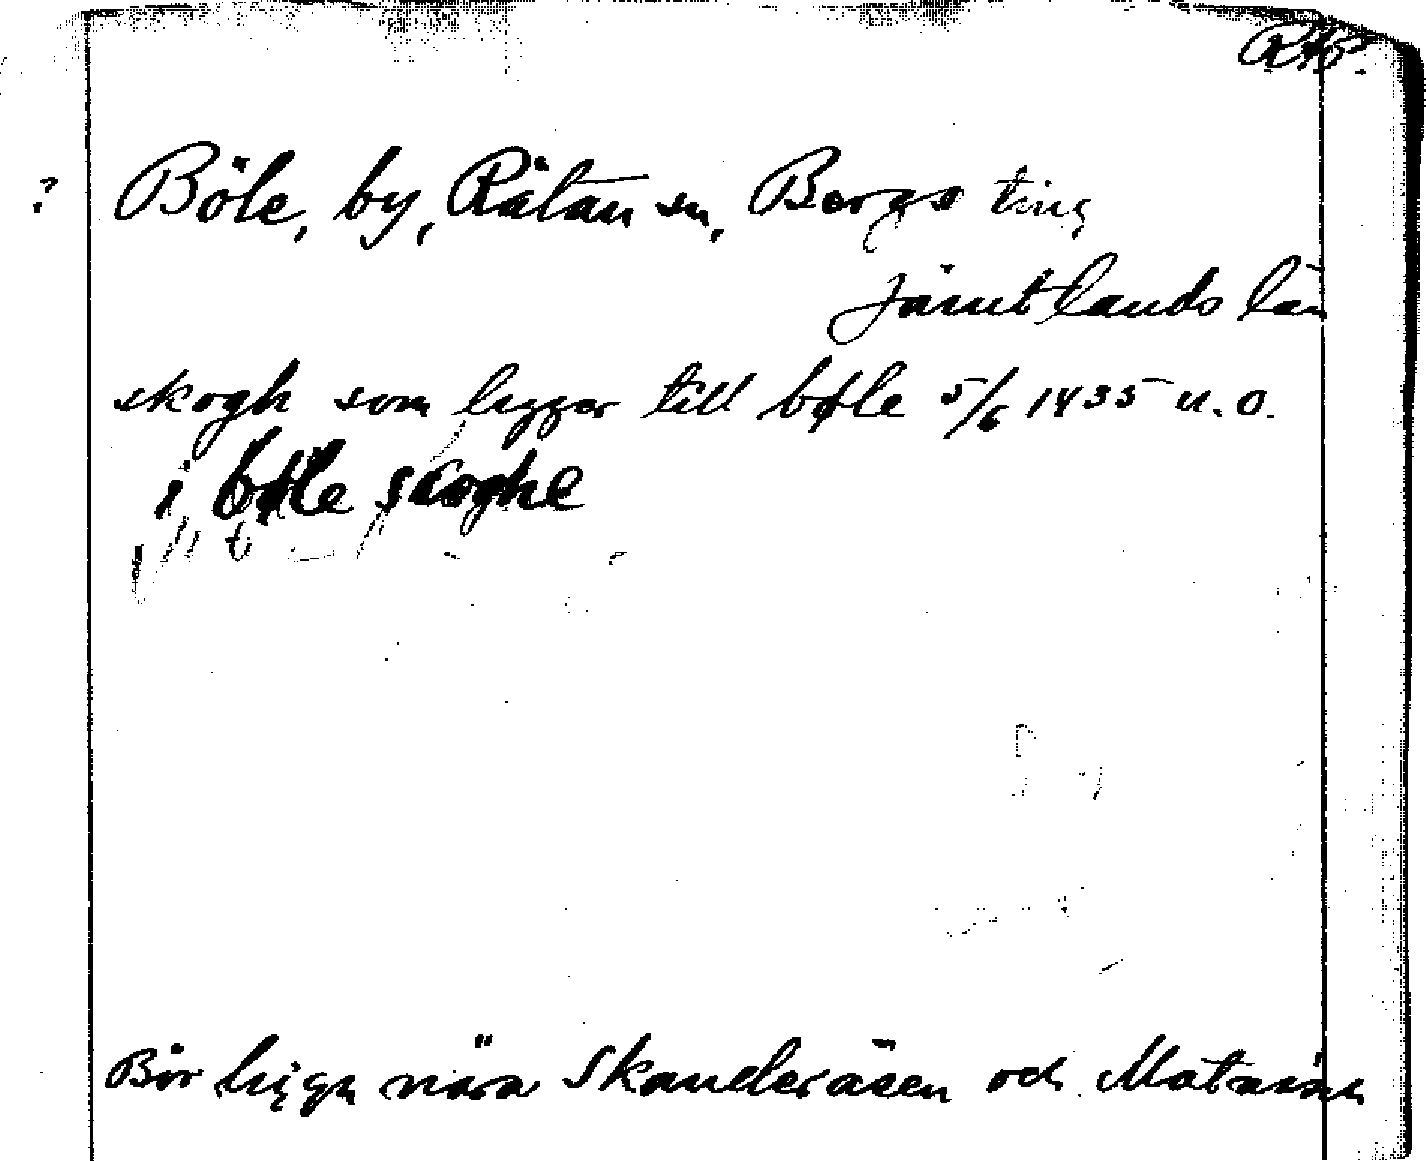 RAp.
? Böle, by, Rätan sn, Bergs ting
Jämtlands län
skogh som ligger till bøle 5/6 1435 u.o.
i bøle skoghe
Bör ligga nära Skanderåsen och Matnäset